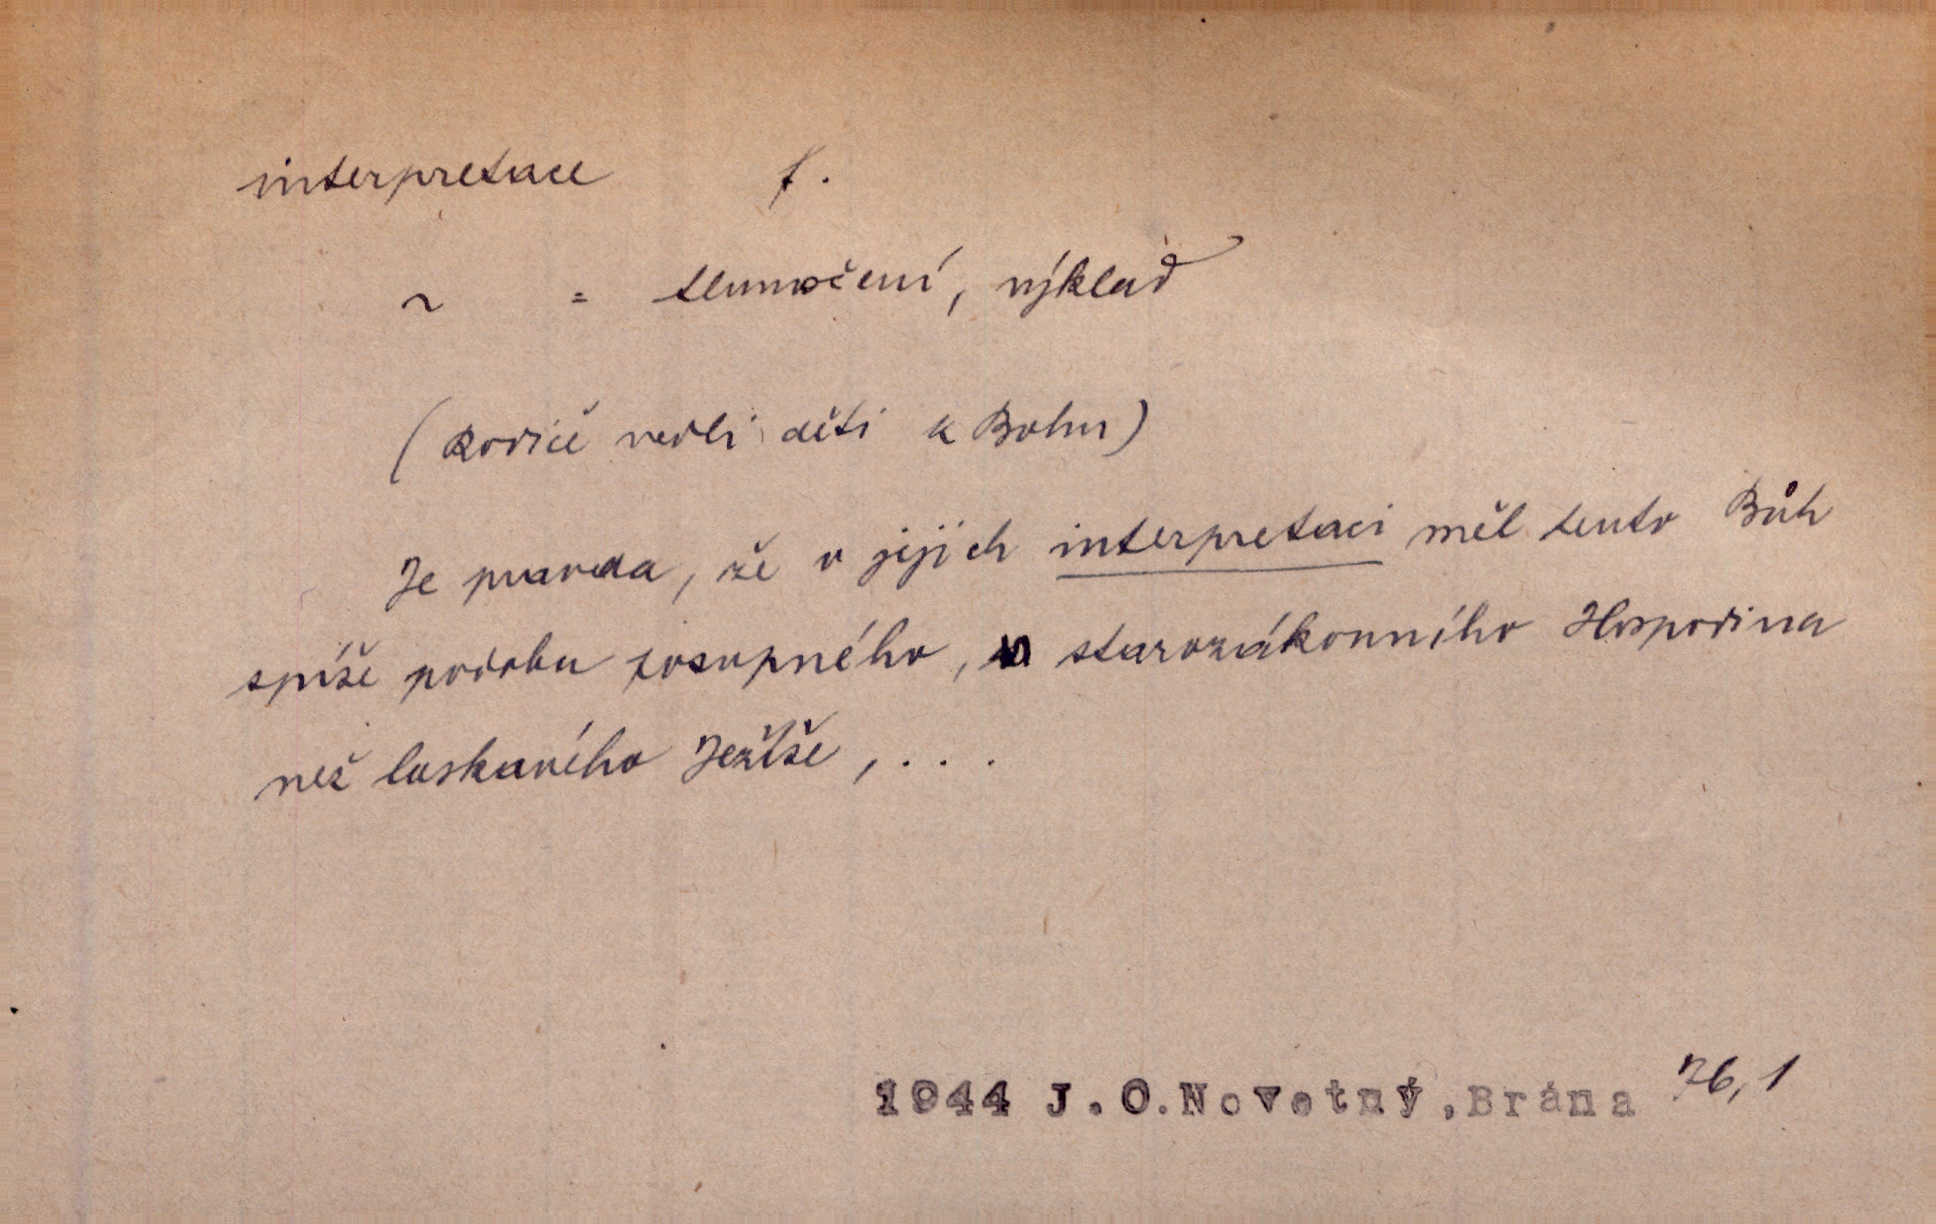 interpretace f.
~ = tlumočení, výklad
(Rodiče vedli děti k Bohu)
Je pravda, že v jejich interpretaci měl tento Bůh
spíše podobu zosupného, starozákonního Hospodina
než laskavého Ježíše, ...
1944 J.O.Novotný, Brána 76,1